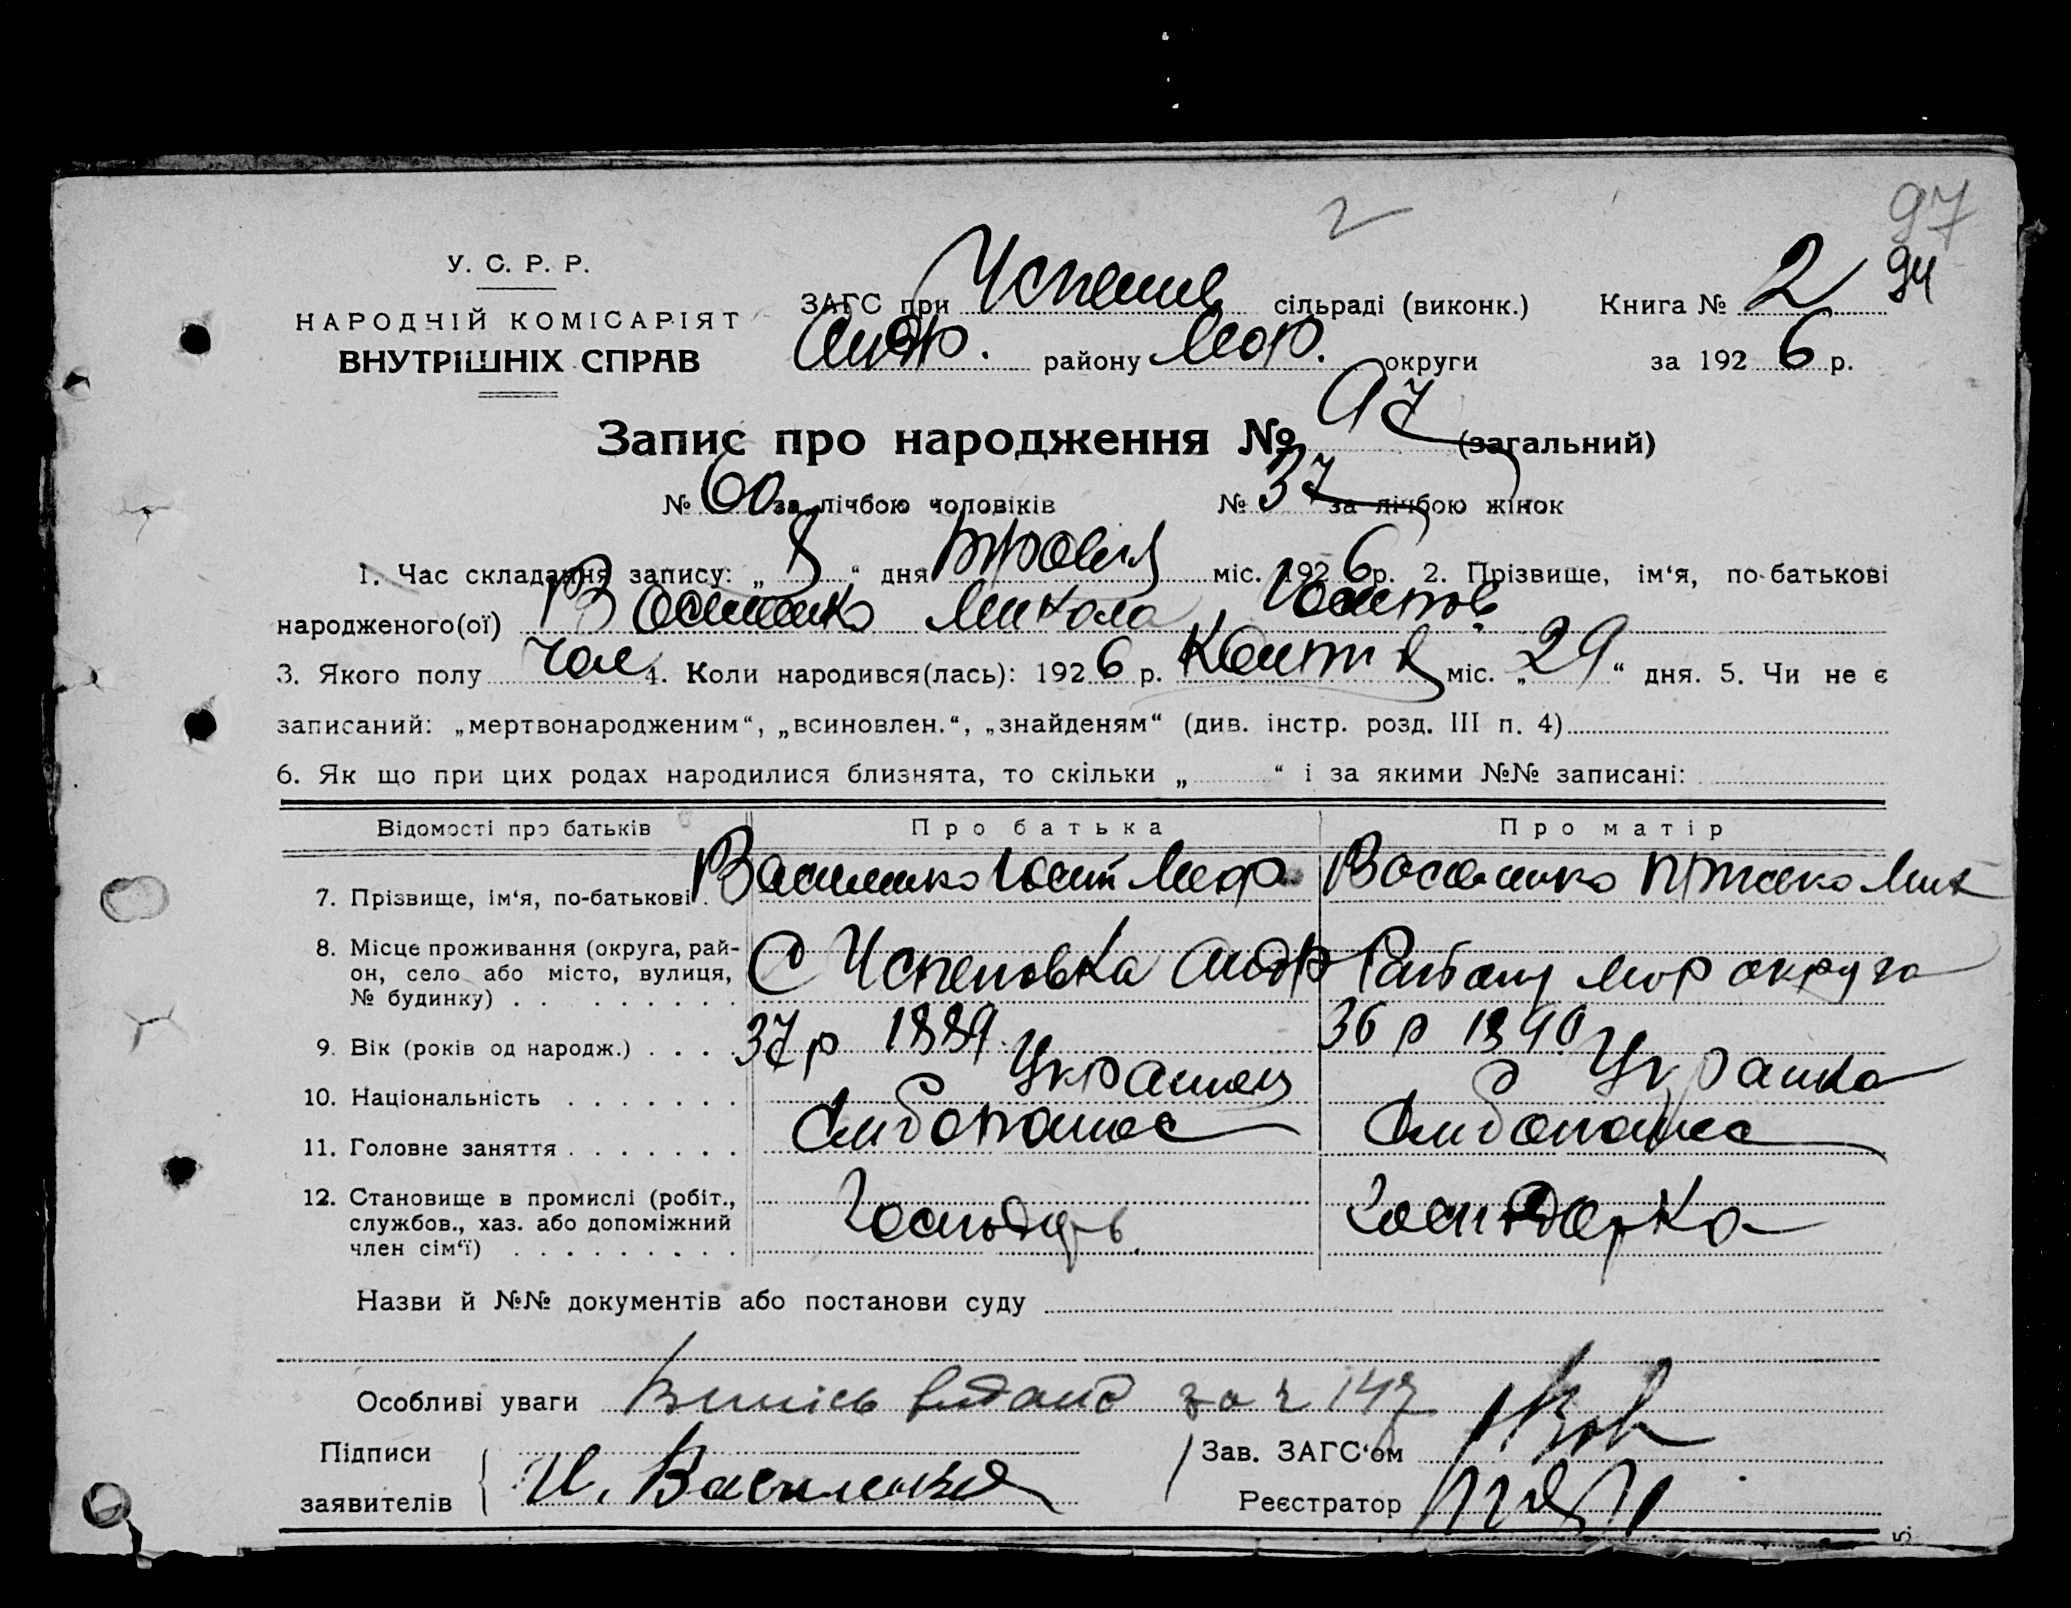 2
97
У. С. Р. Р.
НАРОДНІЙ КОМІСАРІЯТ
ВНУТРІШНІХ СПРАВ
ЗАГС при Успенів сільраді (виконк.) Книга № 2 94
району округи за 192 6 р.
Запис про народження № 97 (загальний)
№ 60 за лічбою чоловіків № 37 за лічбою жінок
1. Час складання запису: „ 8 “ дня травня міс. 192 6 р. 2. Прізвище, ім‘я, по-батькові
народженого(ої) Василенко Микола
3. Якого полу чол 4. Коли народився(лась): 192 6 р. Квітня міс. „ 29 “ дня. 5. Чи не є
записаний: „мертвонародженим“, „всиновлен.“, „знайденям“ (див. інстр. розд. III п. 4)
6. Як що при цих родах народилися близнята, то скільки „ “ і за якими №№ записані:
Відомості про батьків Про батька Про матір
7. Прізвище, ім‘я, по-батькові . Василенко Василенко
8. Місце проживання (округа, рай-
он, село або місто, вулиця,
№ будинку) . . . . . . . . С Успеновка округа
9. Вік (років од народж.) . . . . 37 р 1889 36 р 1890
10. Національність . . . . . . . Українець Українка
11. Головне заняття . . . . . . . Хлібопашес Хлібопашес
12. Становище в промислі (робіт.,
службов., хаз. або допоміжний
член сім‘ї) . . . . . . . . . Господарь Господарка
Назви й №№ документів або постанови суду
Особливі уваги Випись видано за 147
Підписи
заявителів И. Василенко
Зав. ЗАГС‘ом
Реєстратор
5.